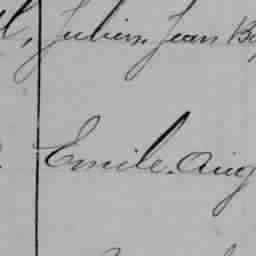 Julien Jean
Emile. Aug